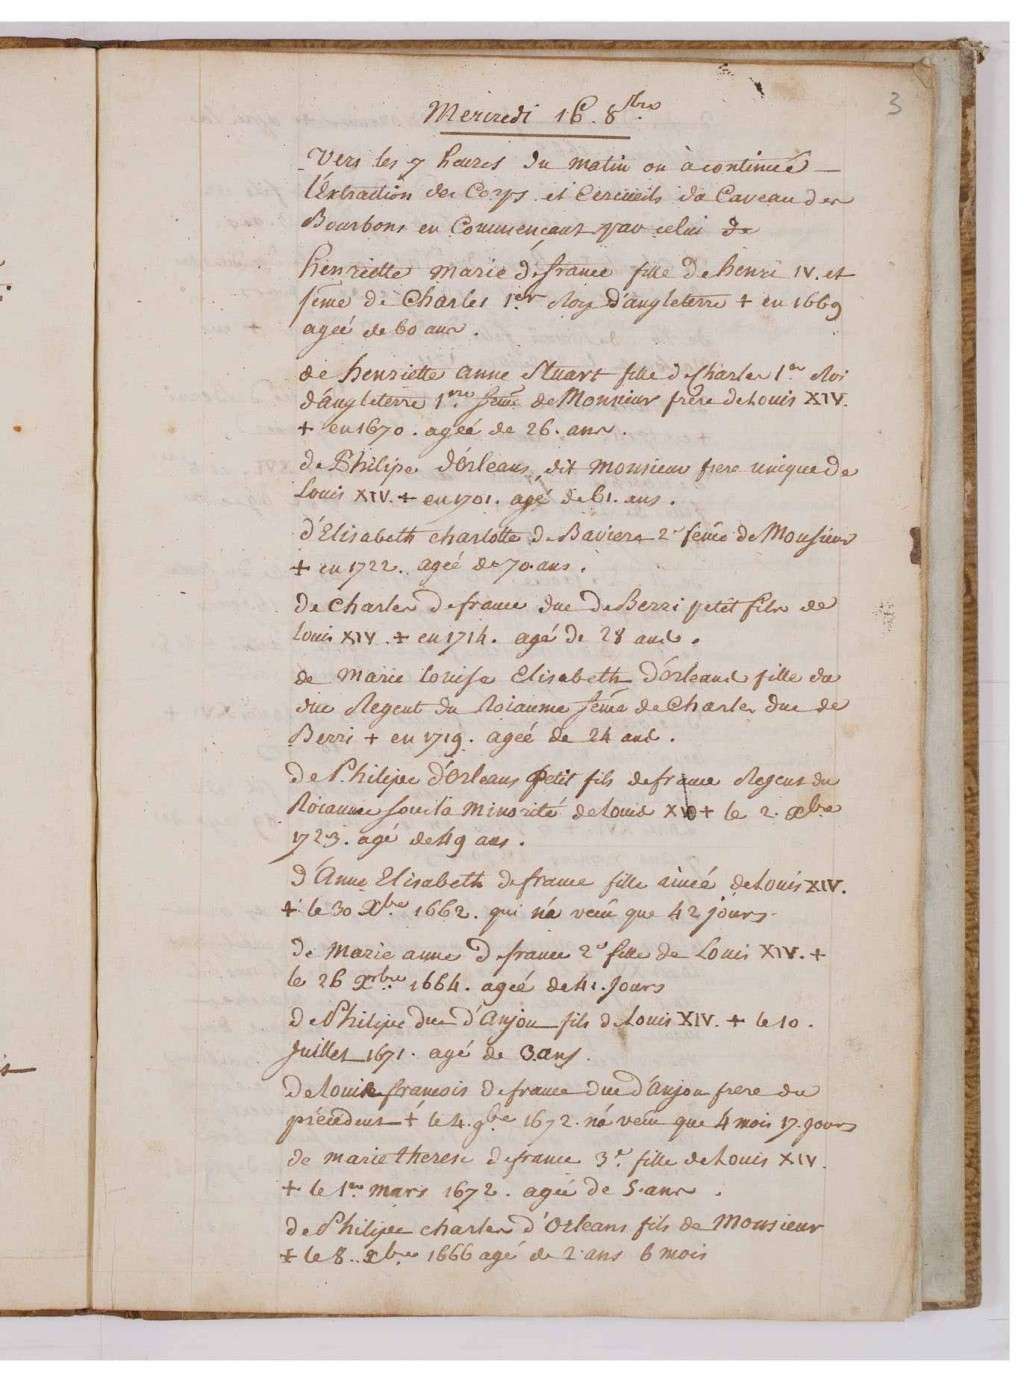 3
Mercredi 16. 8bre.
Vers les 7 heures du matin on à continué
l'extraction des Corps et Cercueils du Caveau des
Bourbons en Commençant par celui de
henriette marie de france fille de henri IV. et
féme de Charles 1er Roy d'angleterre + en 1669
ageé de 60 ans.
de henriette anne Stuart fille de Charles 1er Roi
d'angleterre 1ere féme de Monsieur frere de Louis XIV.
+ en 1670. ageé de 26. ans.
de Philipe d'orleans, dit monsieur frere unique de
Louis XIV. + en 1701. agé de 61. ans.
d'Elisabeth charlotte de Baviere 2e féme de Monsieur
+ en 1722. ageé de 70 ans.
de Charles de france duc de Berri petit fils de
Louis XIV. + en 1714. agé de 28 ans.
de marie louise Elisabeth d'orleans fille du
duc Regent du Roiaume féme de Charles duc de
Berri + en 1719. ageé de 24 ans.
de Philipe d'orleans petit fils de france Regent du
Roiaume sous la minorité de Louis XV + le 2. Xbre
1723. agé de 49 ans.
d'Anne Elisabeth de france fille aineé de Louis XIV.
+ le 30 Xbre 1662. qui n'a vecu que 42 jours.
de Marie anne de france 2e fille de Louis XIV. +
le 26 Xbre 1664. ageé de 41. Jours
de Philipe duc d'Anjou fils de Louis XIV. + le 10.
Juillet 1671. agé de 3 ans.
de Louis francois de france duc d'anjou frere du
précédent + le 4. 9bre 1672. n'a vecu que 4 mois 17. jours
de marie therese de france 3e fille de Louis XIV.
+ le 1er mars 1672. ageé de 5. ans.
de Philipe charles d'orleans fils de Monsieur
+ le 8. Xbre 1666 agé de 2 ans 6 mois